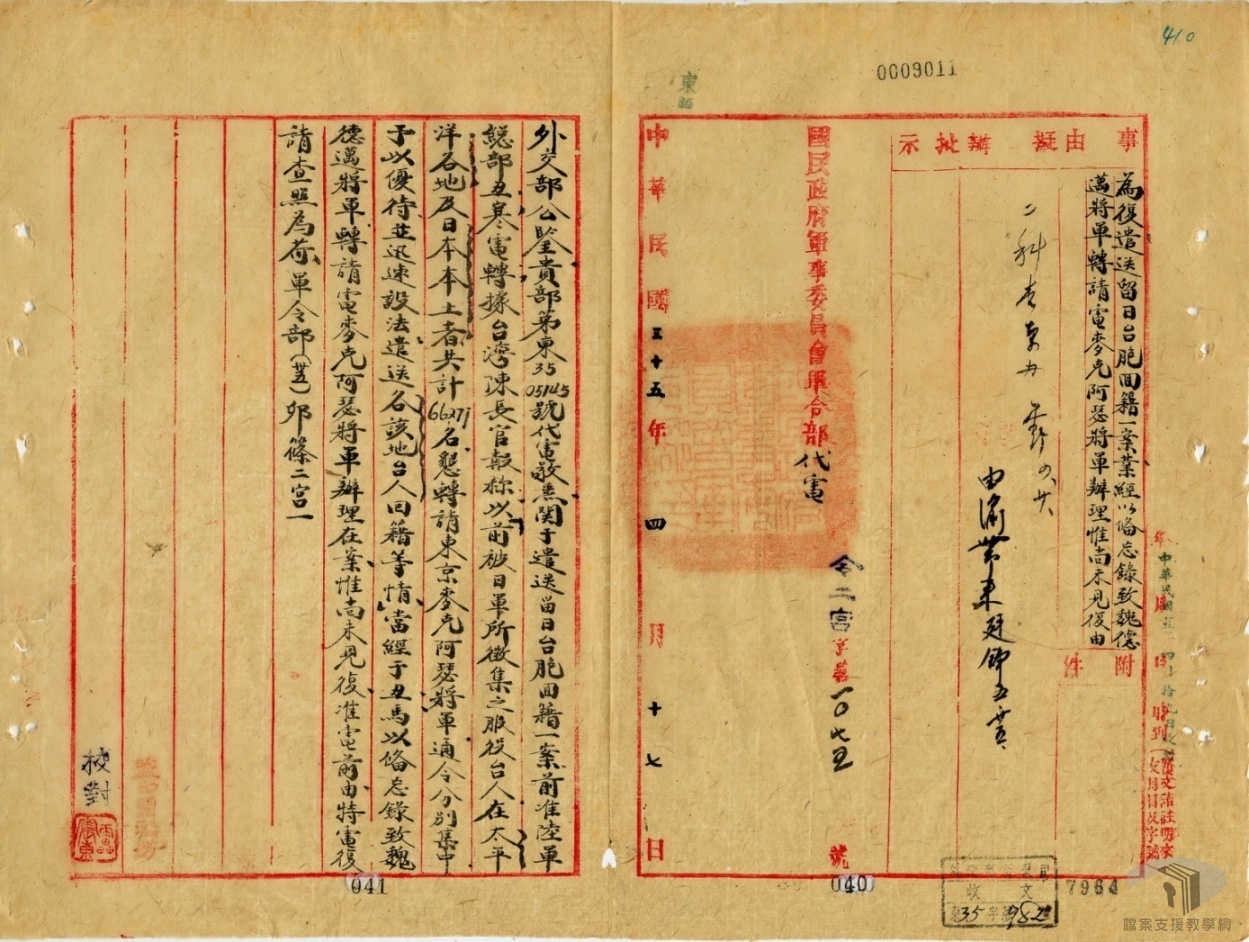 410
0009011
東
事由
擬辦
批示
為復遣送留日台胞回籍一案業經以備忘錄致魏德
邁將軍轉請電麥克阿瑟將軍辦理惟尚未見復由
附件
國民政府軍事委員會軍令部代電
令二宮字第一〇七五號
中華民國三十五年四月十七日
外交部公鑒貴部第東35 05145號代電敬悉関于遣送留日台胞回籍一案前准陸軍
總部丑寒電轉據台灣陳長官報称以前被日軍所徵集之服役台人在太平
洋各地及日本本土者共計66277名懇轉請東京麥克阿瑟將軍通令分別集中
予以優待並迅速設法遣送各該地台人回籍等情當經于丑馬以備忘錄致魏
德邁將軍轉請電麥克阿瑟將軍辦理在案惟尚未見復准電前由特電復
請查照為荷軍令部(卅五)卯篠二宮一
校對
收文
東35字第982
7964
040
041
檔案支援教學網